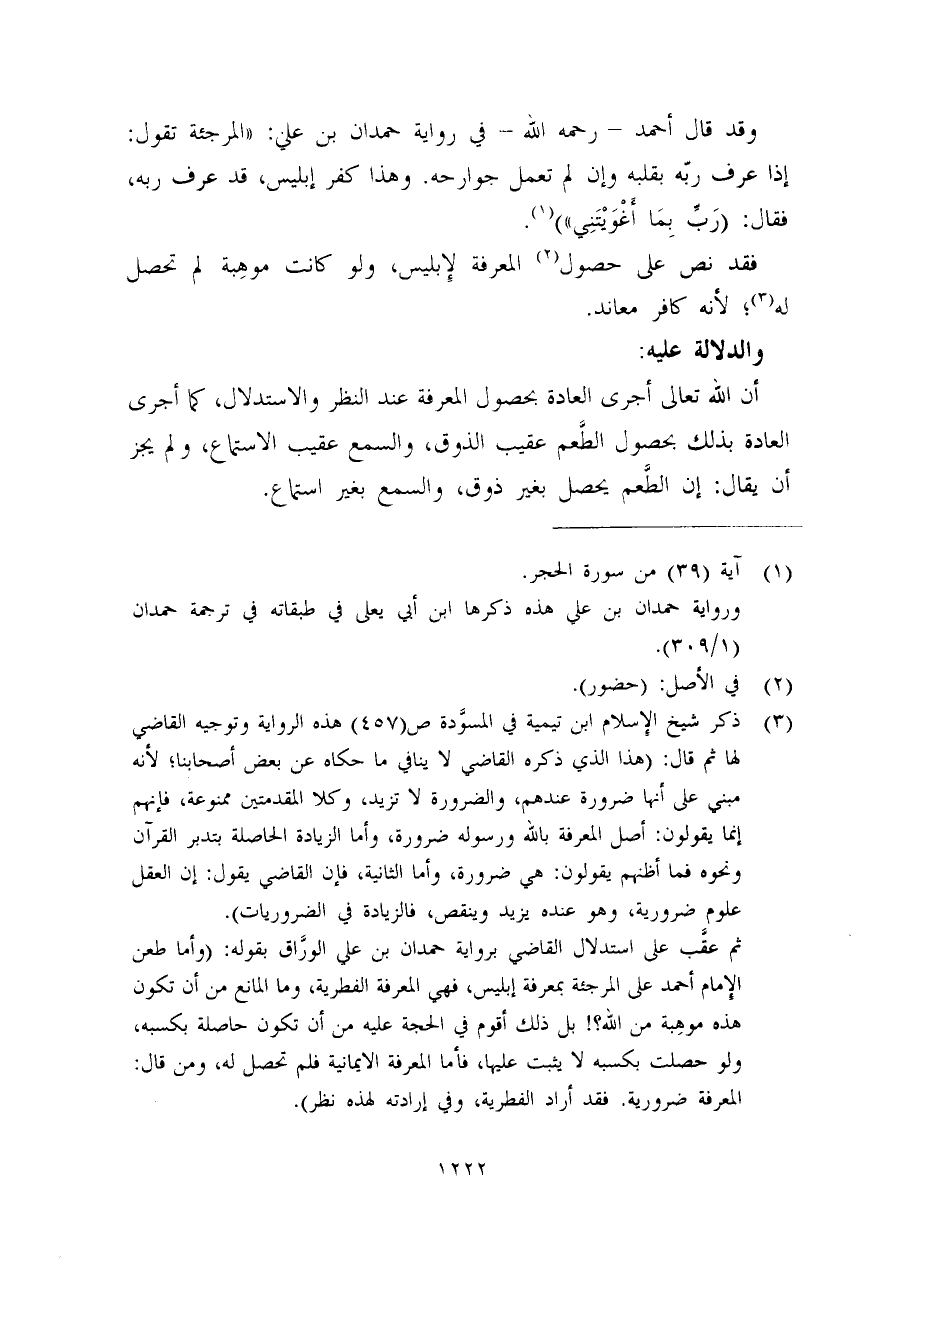 وقد قال أحمد – رحمه الله – في رواية حمدان بن علي: «المرجئة تقول:
إذا عرف ربّه بقلبه وإن لم تعمل جوارحه. وهذا كفر إبليس، قد عرف ربه،
فقال: (رَبِّ بِمَا أَغْوَيْتَنِي»)(١).
فقد نص على حصول(٢) المعرفة لإبليس، ولو كانت موهِبة لم تحصل
له(٣)؛ لأنه كافر معاند.
والدلالة عليه:
أن الله تعالى أجرى العادة بحصول المعرفة عند النظر والاستدلال، كما أجرى
العادة بذلك بحصول الطَّعم عقيب الذوق، والسمع عقيب الاستماع، ولم يجز
أن يقال: إن الطَّعم يحصل بغير ذوق، والسمع بغير استماع.
(١) آية (٣٩) من سورة الحجر.
ورواية حمدان بن علي هذه ذكرها ابن أبي يعلى في طبقاته في ترجمة حمدان
(٣٠٩/١).
(٢) في الأصل: (حضور).
(٣) ذكر شيخ الإسلام ابن تيمية في المسوَّدة ص(٤٥٧) هذه الرواية وتوجيه القاضي
لها ثم قال: (هذا الذي ذكره القاضي لا ينافي ما حكاه عن بعض أصحابنا؛ لأنه
مبني على أنها ضرورة عندهم، والضرورة لا تزيد، وكلا المقدمتين ممنوعة، فإنهم
إنما يقولون: أصل المعرفة بالله ورسوله ضرورة، وأما الزيادة الحاصلة بتدبر القرآن
ونحوه فما أظنهم يقولون: هي ضرورة، وأما الثانية، فإن القاضي يقول: إن العقل
علوم ضرورية، وهو عنده يزيد وينقص، فالزيادة في الضروريات).
ثم عقَّب على استدلال القاضي برواية حمدان بن علي الورَّاق بقوله: (وأما طعن
الإمام أحمد على المرجئة بمعرفة إبليس، فهي المعرفة الفطرية، وما المانع من أن تكون
هذه موهِبة من الله؟! بل ذلك أقوم في الحجة عليه من أن تكون حاصلة بكسبه،
ولو حصلت بكسبه لا يثبت عليها، فأما المعرفة الايمانية فلم تحصل له، ومن قال:
المعرفة ضرورية. فقد أراد الفطرية، وفي إرادته لهذه نظر).
١٢٢٢